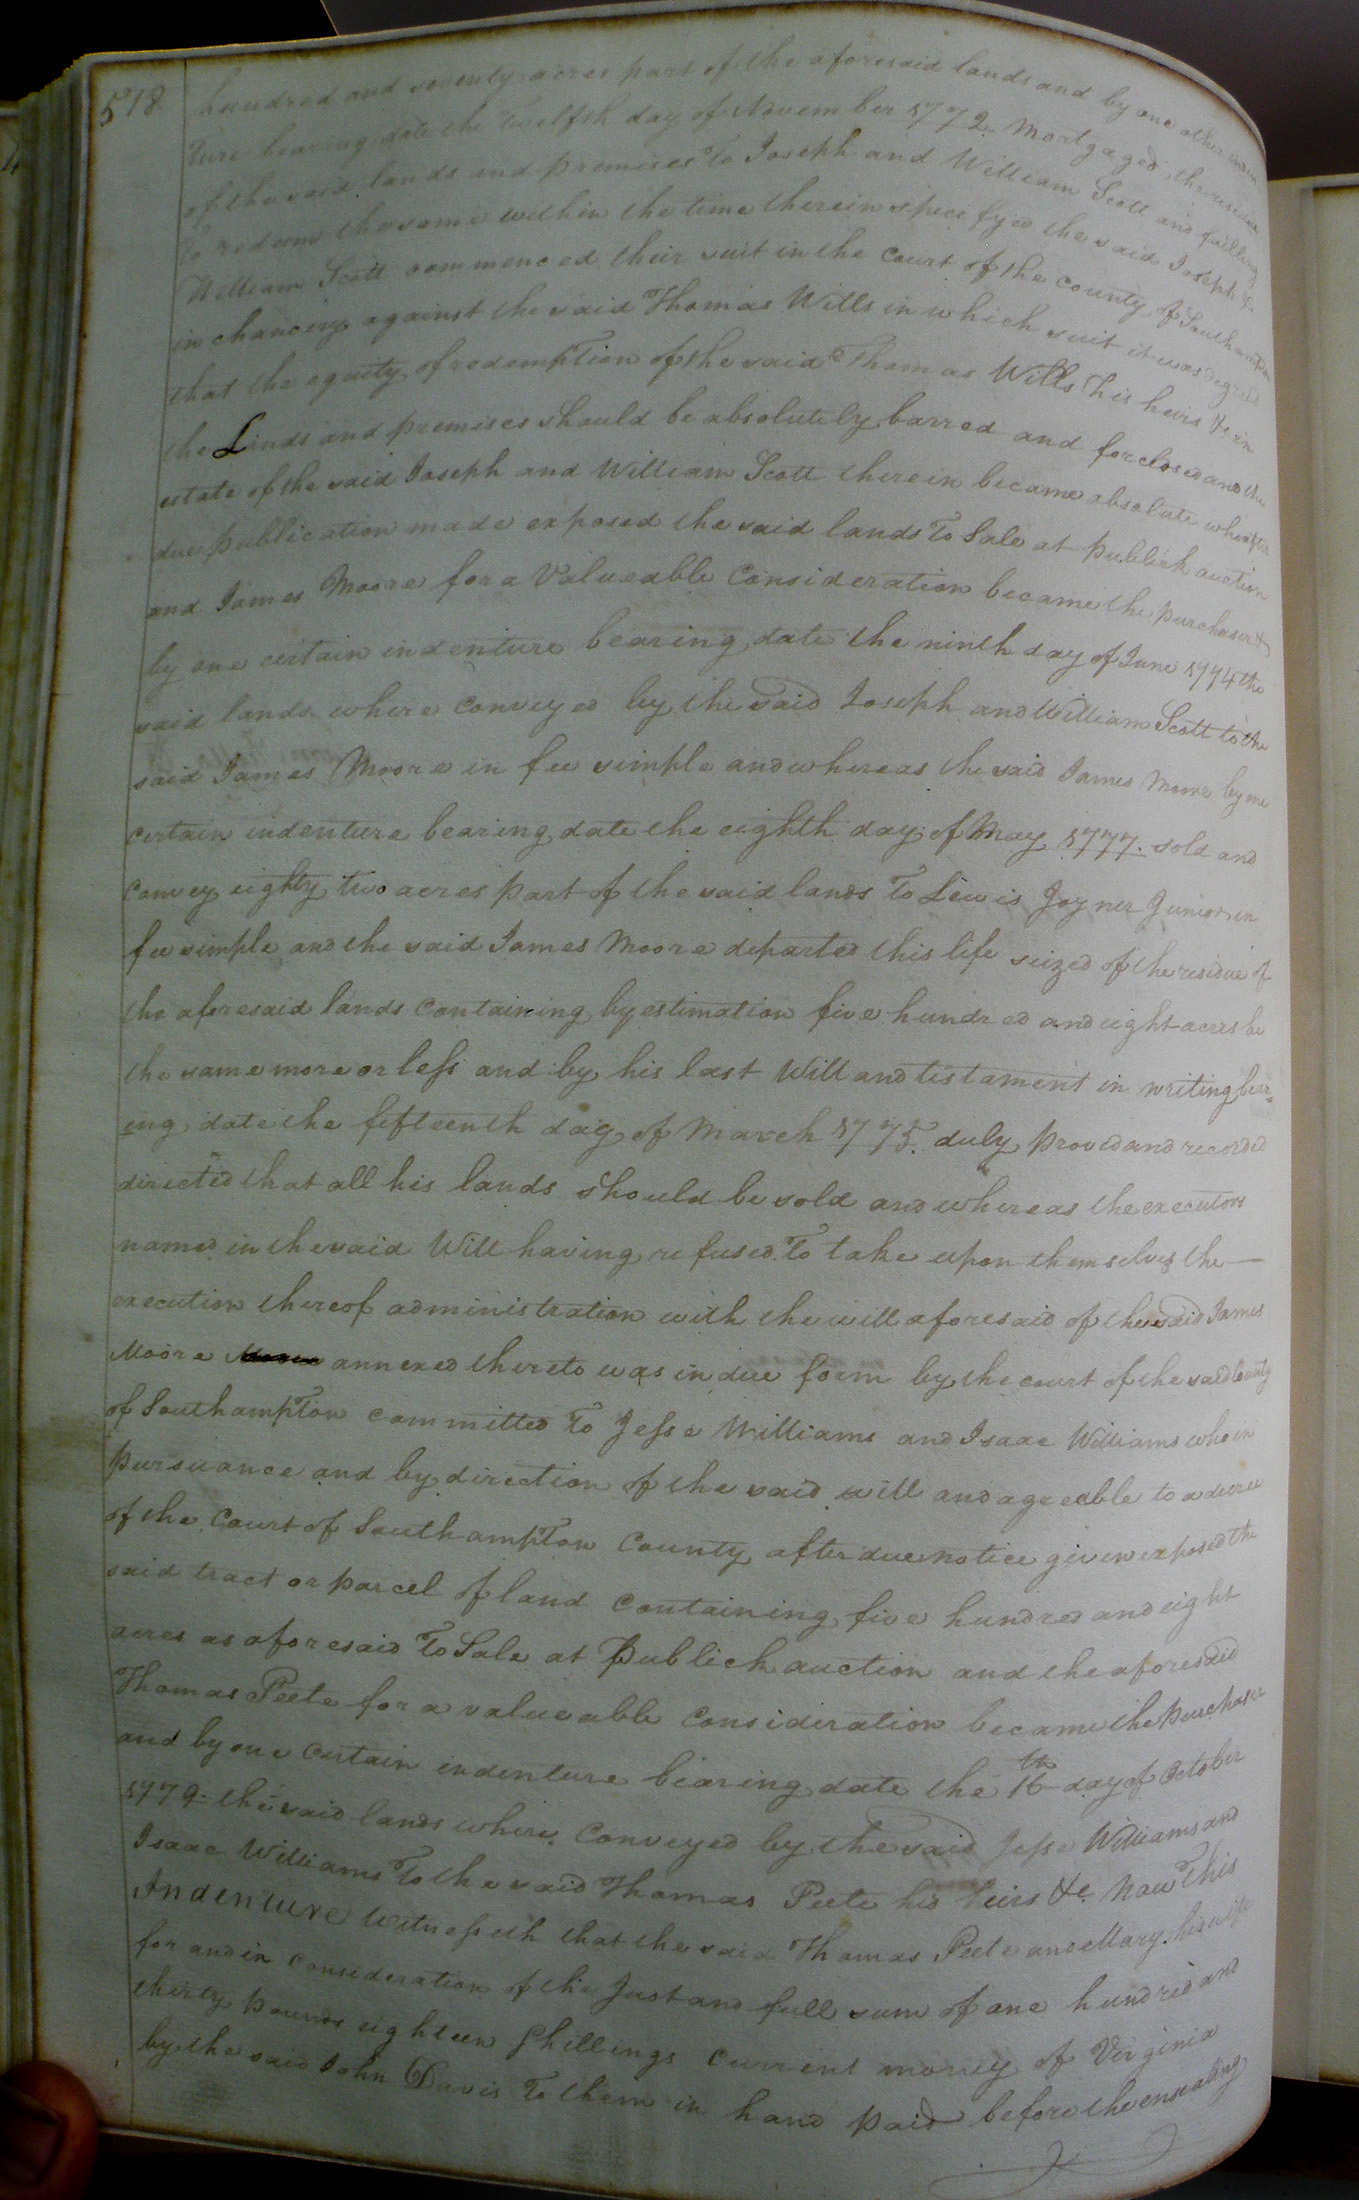 518
hundred and seventy acres part of the aforesaid lands and by one other inden
ture bearing date the twelfth day of November 1772. Mortgaged the residue
of the said lands and premises To Joseph and William Scott and failling
To redeem the same within the time therein specifyed the said Joseph &
William Scott commenced their suit in the Court of the county of Southampton
in chancery against the said Thomas Wills in which suit it was degreed
that the equity of redemption of the said Thomas Wills his heirs &c in
the Lands and premises should be absolutely barred and forclosed and the
estate of the said Joseph and William Scott therein became absolute who after
due publication made exposed the said lands To Sale at publick auction
and James Moore for a Valueable Consideration became the purchaser &
by one certain indenture bearing date the ninth day of June 1774 the
said lands where Conveyed by the said Joseph and William Scott to the
said James Moore in fee simple and whereas the said James Moore by one
certain indenture bearing date the eighth day of May 1777. sold and
Convey eighty two acres part of the said lands To Lewis Joyner Junior in
fee simple and the said James Moore departed this life seized of the residue of
the aforesaid lands Containing by estimation five hundred and eight acres be
the same more or less and by his last Will and testament in writing bear-
ing date the fifteenth day of March 1775. duly proved and recorded
directed that all his lands should be sold and whereas the executors
named in the said Will having refused To take upon themselves the
execution thereof administration with the will aforesaid of the said James
Moore annexed thereto was in due form by the court of the said County
of Southampton committed To Jesse Williams and Isaac Williams who in
pursuance and by direction of the said will and agreeable to a decree
of the Court of Southampton County after due notice given exposed the
said tract or parcel of land Containing five hundred and eight
acres as aforesaid To Sale at Publick auction and the aforesaid
Thomas Peete for a valueable Consideration became the purchaser
and by one certain indenture bearing date the 16th day of October
1779. the said lands where Conveyed by the said Jesse Williams and
Isaac Williams To the said Thomas Peete his heirs &c Now This
Indenture Witnesseth that the said Thomas Peete and Mary his wife
for and in consideration of the Just and full sum of one hundred and
thirty pounds eighteen Shillings Current money of Virginia
by the said John Davis To them in hand paid before the ensealing